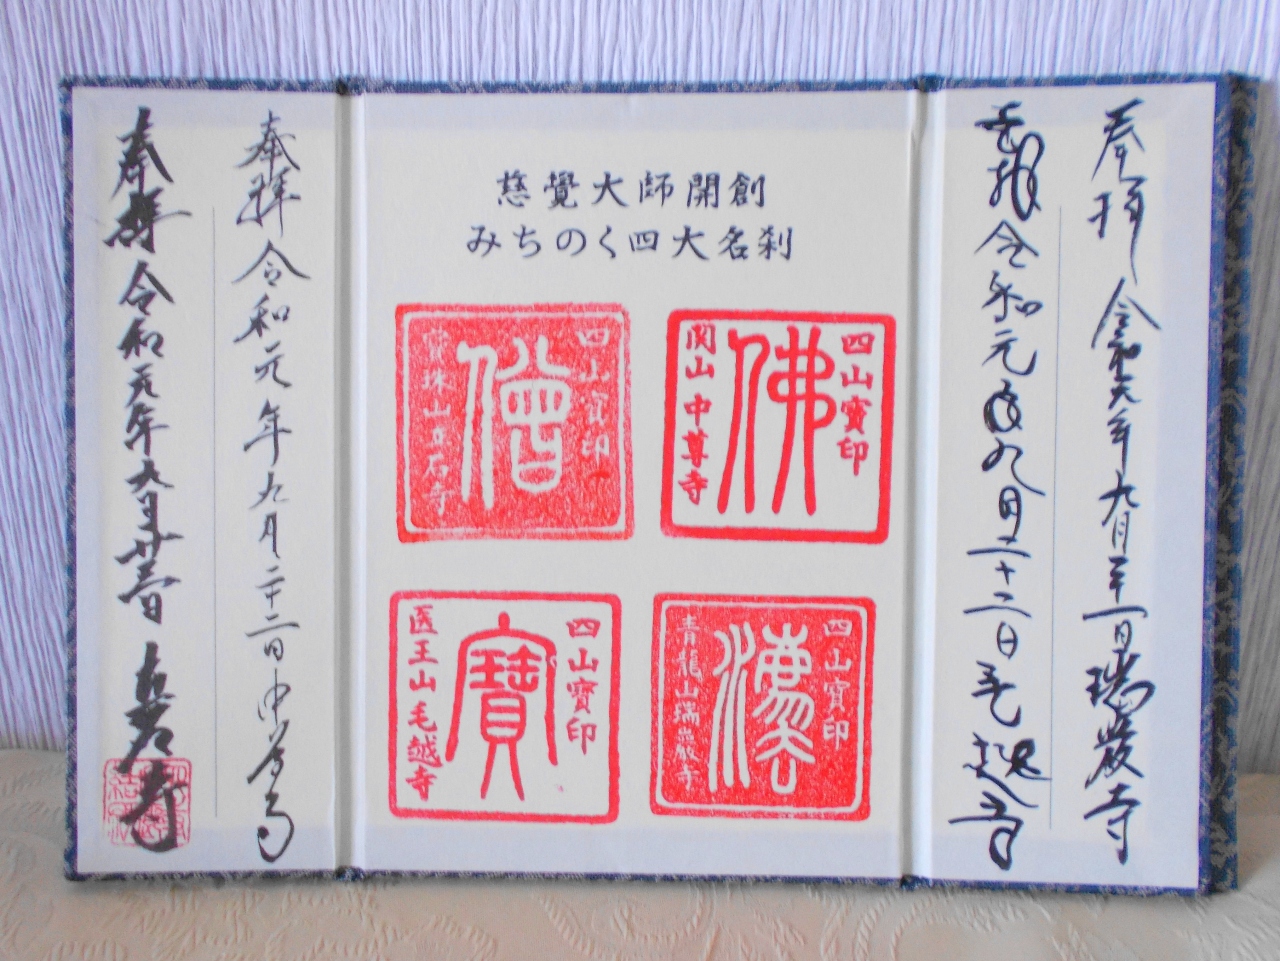 奉拝 令和元年九月二十一日 瑞巌寺
奉拝 令和元年九月二十二日 毛越寺
慈覺大師開創
みちのく四大名刹
四山寶印
佛
関山中尊寺
四山寶印
僧
寳珠山立石寺
四山寶印
青龍山瑞巌寺
四山寶印
寶
医王山毛越寺
奉拝 令和元年九月二十二日 中尊寺
奉拝 令和元年九月廿春日 立石寺